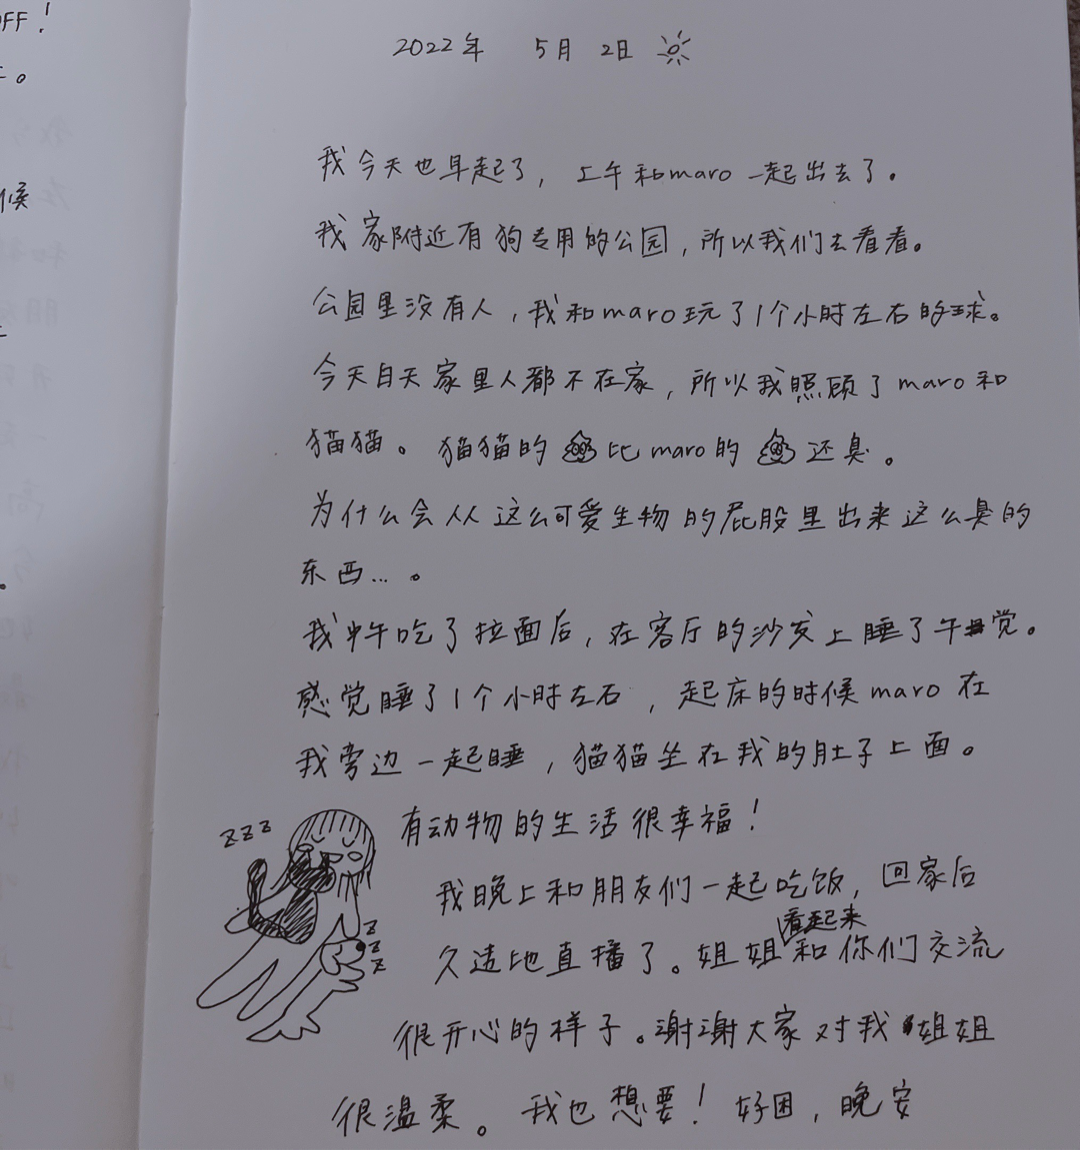 FF！
。
候
。
2022年 5月 2日
我今天也早起了，上午和maro一起出去了。
我家附近有狗专用的公园，所以我们去看看。
公园里没有人，我和maro玩了1个小时左右的球。
今天白天家里人都不在家，所以我照顾了maro和
猫猫。猫猫的比maro的还臭。
为什么会从这么可爱生物的屁股里出来这么臭的
东西…。
我中午吃了拉面后，在客厅的沙发上睡了午觉。
感觉睡了1个小时左右，起床的时候maro在
我旁边一起睡，猫猫坐在我的肚子上面。
有动物的生活很幸福！
zzz
我晚上和朋友们一起吃饭，回家后
久违地直播了。姐姐看起来和你们交流
z
z
z
很开心的样子。谢谢大家对我姐姐
很温柔。我也想要！好困，晚安